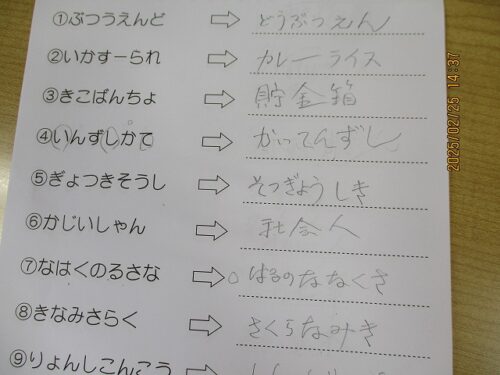 ①ぶつうえんど ⇨ どうぶつえん
②いかすーられ ⇨ カレーライス
③きこばんちょ ⇨ 貯金箱
④いんずしかて ⇨ かいてんずし
⑤ぎょつきそうし ⇨ そつぎょうしき
⑥かじいしゃん ⇨ 社会人
⑦なはくのるさな ⇨ はるのななくさ
⑧きなみさらく ⇨ さくらなみき
⑨りょんしこんこう
2025/02/25 14:37